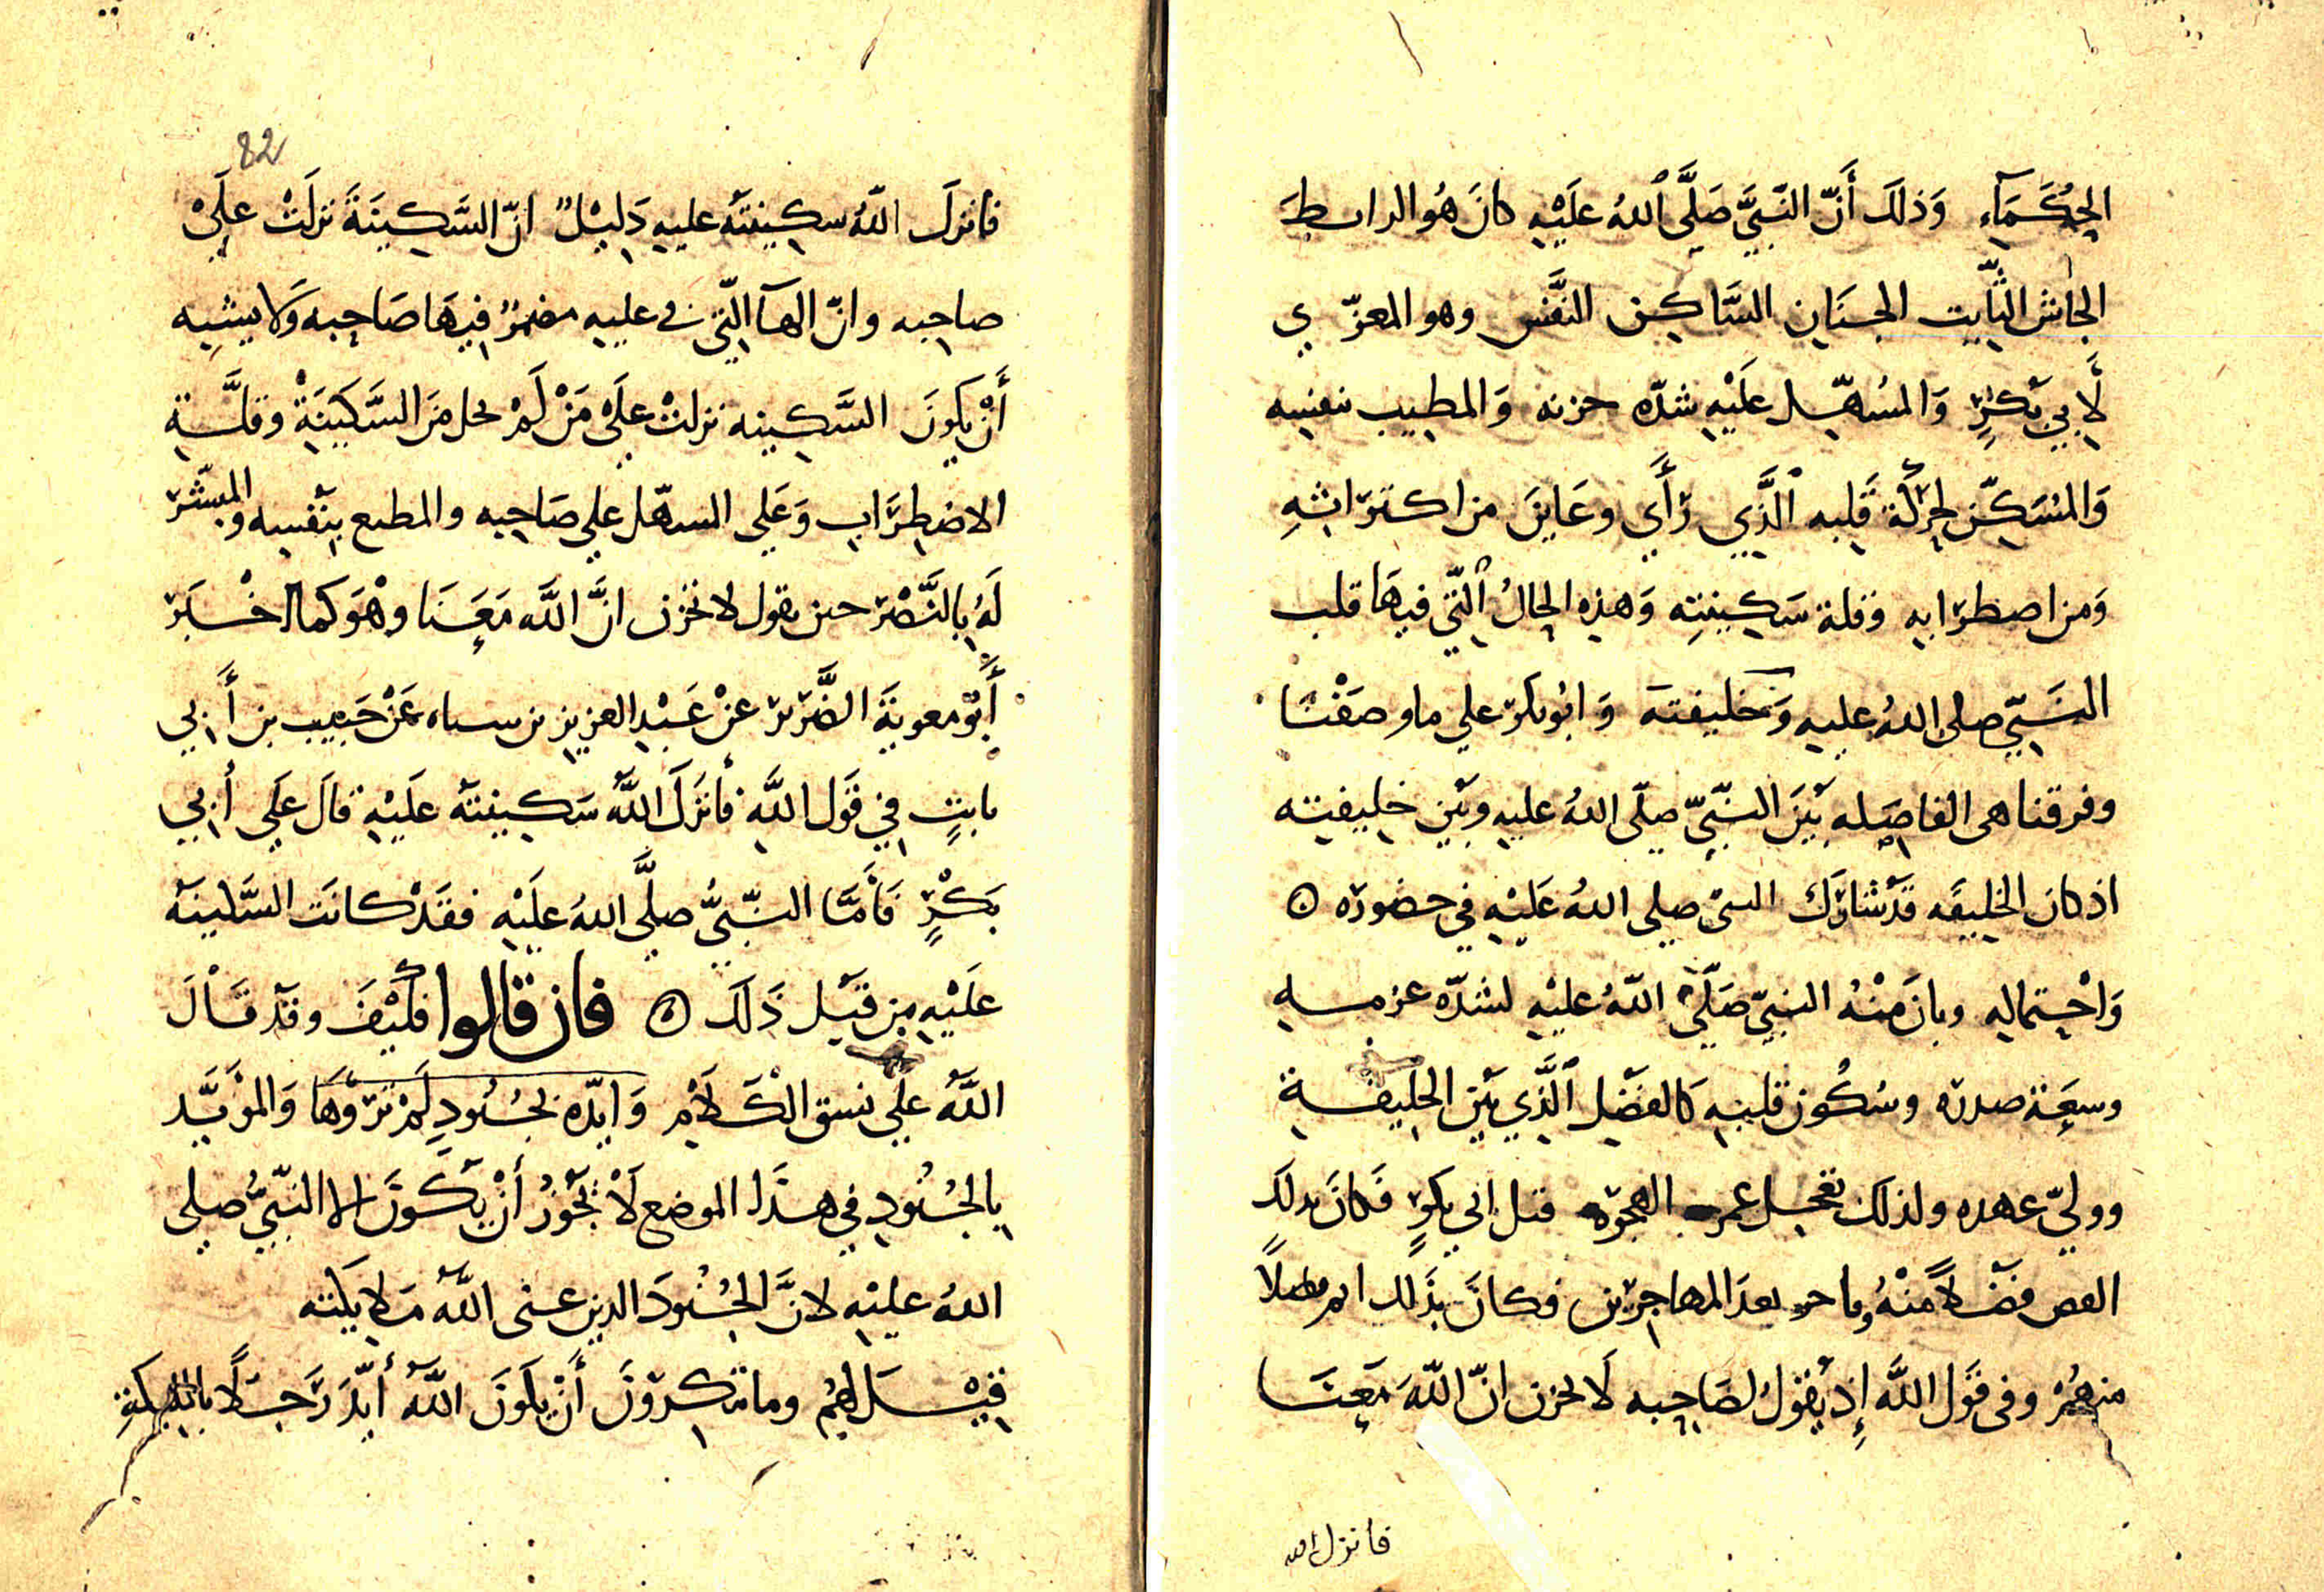 الحُكَمَآءِ وَذلَكَ أَنّ النّبيَّ صَلَّى اللهُ علَيْهِ كانَ هُو الرابطَ
الجاش الثّابت الجنَانِ السَّاكِن النفَّس وهو المعزّي
لأَبي بَكرٍ وَالمسُهّل علَيْهِ شدّه حزنه وَالمطيب نفسِه
وَالمسَكّن لحِركَة قَلبه الَّذِي رَأَي وعَاينَ من اكترَاثهِ
وَمن اضطرَابه وقلة سَكينتِه وَهذِه الحالُ التّي فيهَا قلب
النَبيّ صلى اللهُ عليهِ وَخليفتَه وَابُو بكر علي ما وصَفْنَا
وفرقنا هى الفاصِله بَيْنَ النبّيّ صلّى اللهُ عليهِ وبَيْن خليفته
اذ كان الخليفَه قَدْ شَارَكَ النبىّ صلي اللهُ عَليْهِ في حضوره ۞
وَاحْتماله وبانَ مِنْهُ النبيّ صَلّىَ اللّهُ عليْهِ لشدّه عزمه
وسعَة صدره وسُكُون قلبهِ كَالفضَل الَّذِي بَيْن الخليفة
وولىّ عهده ولذلك عمر الهجره قبل ابي بكرٍ فَكانَ بذلَك
فضْلاً مِنْهُ وما بعدَ المهاجريْن فكانَ بذَلك
منهُمْ وفى قَول اللَّه إِذ يَقوُل لصَاحِبه لَا تحزن انّ اللّهَ معَنَا
فانزل الله
82
فانزلَ اللّهُ سكِينتَه عليهِ دَليْل انّ السَّكينَةَ نزلَتْ علَىْ
صاحِبه وانّ الهآ التّي في عليهِ مضمرُ فيهَا صَاحِبه وَلا يشبِه
أَنْ يكوُنَ السَّكينه نزلتْ علَى مَنْ لَمْ يحل مَن السَّكينَةْ وقلَّة
الاضطِرَابِ وَعَلي السهّل علي صَاحِبه والمطيع بِنَفْسِه والمبشّر
لَهُ بِالنَّصْر حين يقول لا تحزن انَّ اللَّه مَعَنَا وَهْوَ كما اخْبَر
أَبوُ معويَةَ الضَّرير عنْ عَبْدِ العزيز بن سياه عَنْ حَبيب بن أَبي
ثابتٍ في قَول اللَّهِ فأنزَلَ اللَّهُ سَكينتَه علَيْهِ قالَ علَي أَبي
بَكْرٍ فَأَمّا النبّيُّ صلَّى اللهُ علَيْهِ فقَدْ كانَت السَّكينَه
علَيْهِ مِن قَبْل ذَلكَ ۞ فان قالوا فكَيْفَ وقَدْ قَالَ
اللَّهُ علي نسق الْكَلَامِ وَايّده بجُنُودٍ لَمْ ترَوْهَا وَالمؤيَّد
بِالجُنُودِ في هذَا الموضع لَا يَجُوزُ أَنْ يَكُونَ الا النبّيُّ صلي
اللهُ عليْهِ لانَّ الجُنُودَ الذين عنى اللَّهُ مَلايكَته
قيْلَ لهُمْ وما تنكِروُنَ أَنْ يكَونَ اللَّهُ أَيّدَ رَجُلاً بالملايكةِ